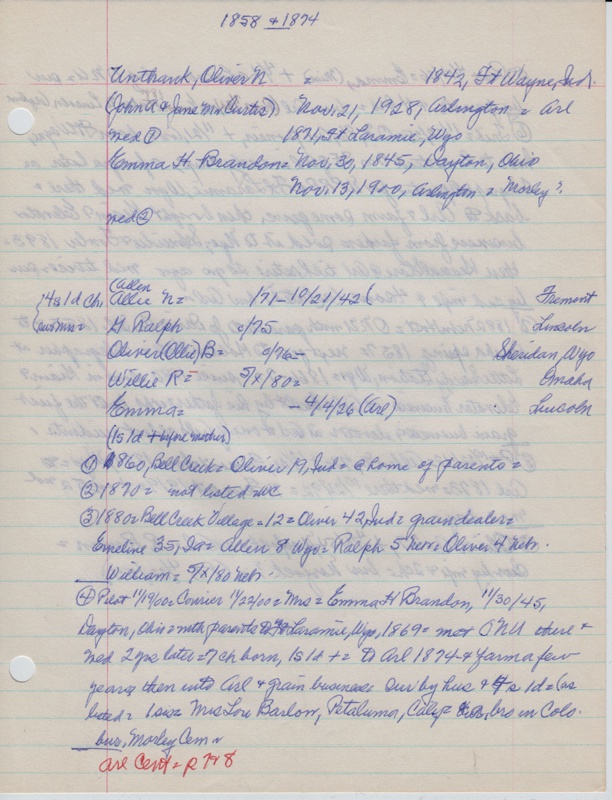 1858 & 1874
Unthank, Oliver N = 1842, Ft Wayne, Ind.
(John A & Jane Mc Curtis) Nov. 21, 1928, Arlington = Arl
med ① 1871, Ft Laramie, Wyo
Emma H. Brandon = Nov. 30, 1845, Dayton, Ohio
Nov. 13, 1900, Arlington = Morley?
med ②
Callen
{4s 1d Ch. Allie N = 1/71 - 10/21/42 ( Fremont
sur Mrs = G Ralph c/75 Lincoln
Oliver (Ollie) B = c/76 - Sheridan, Wyo
Willie R = 5/x/80 = Omaha
Emma = - 4/4/26 (Arl) Lincoln
(1s 1d + before mother)
① 1860, Bell Creek = Oliver 19, Ind = @ home of parents =
② 1870 = not listed WC
③ 1880 = Bell Creek Village = 12 = Oliver 42, Ind = grain dealer =
Emeline 35, Io = Allen 8 Wyo = Ralph 5 Nebr = Oliver 4 Nebr.
William = 5/x/80 Nebr
④ Pilot 11/19/00 = Courier 11/22/00 = Mrs = Emma H Brandon, 11/30/45,
Dayton, Ohio = with parents to Ft Laramie, Wyo, 1869 = met ONU there &
med 2 yrs later = 7 ch born, 1s 1d + = to Arl 1874 & farm a few
years then into Arl & grain business = sur by hus & 4s 1d = (as
listed = 1 sis = Mrs Lou Barlow, Petaluma, Calif = bro in Colo.
bur, Morley Cem =
Arl Cent = p 778